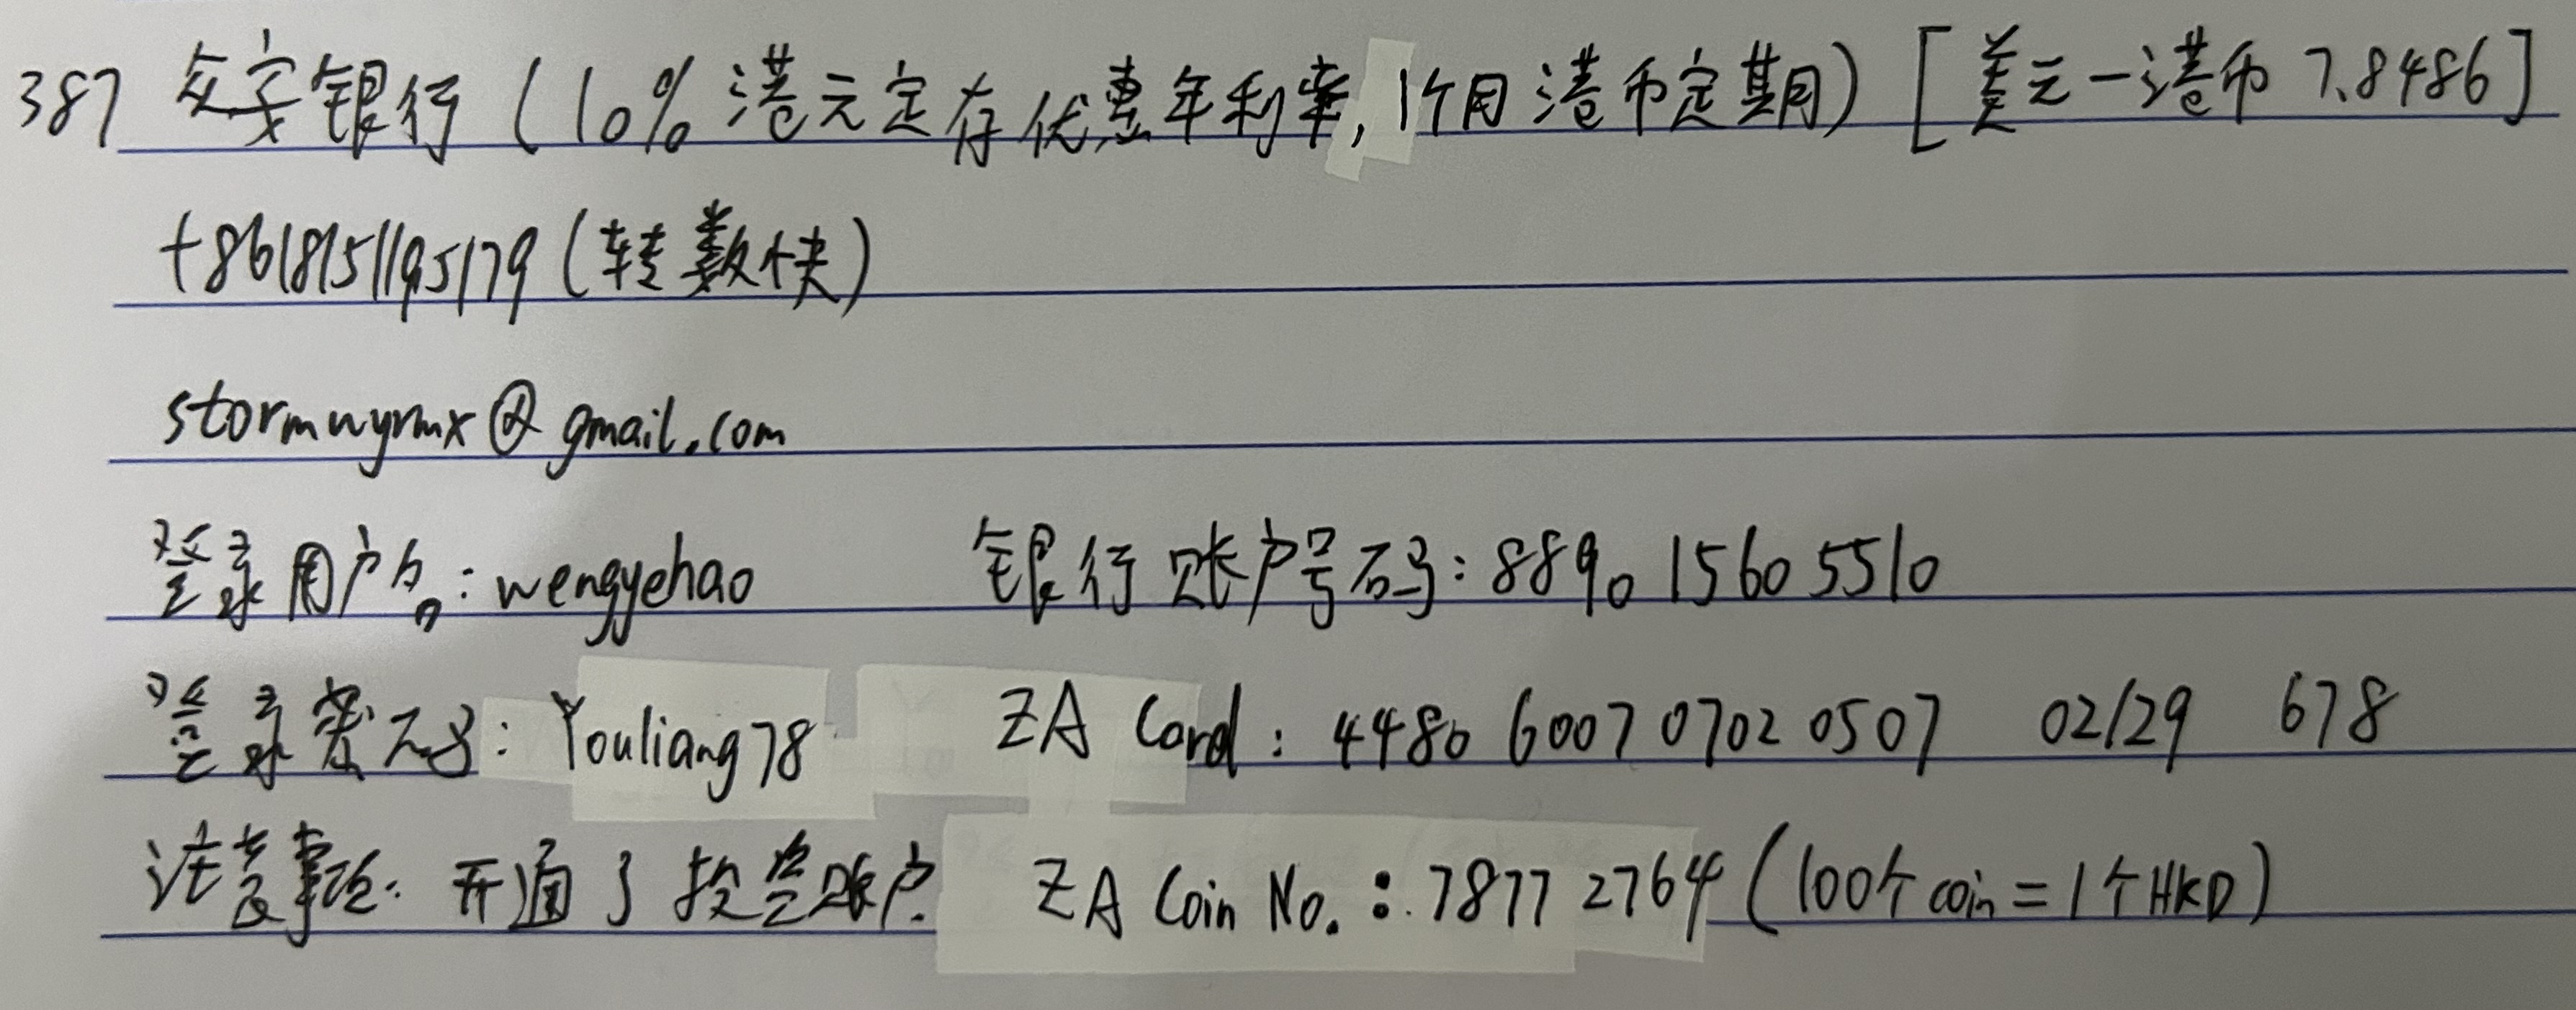 387 众安银行 (10%港元定存优惠年利率,1个月港币定期) [美元—港币 7.8486]
+8618151195179 (转数快)
stormwyrmx@gmail.com
登录用户名: wengyehao 银行账户号码: 8890 1560 5510
登录密码: Youliang78 ZA Card: 4480 6007 0702 0507 02/29 678
注意事项: 开通了投资账户. ZA Coin No.: 7877 2764 (100个coin=1个HKD)